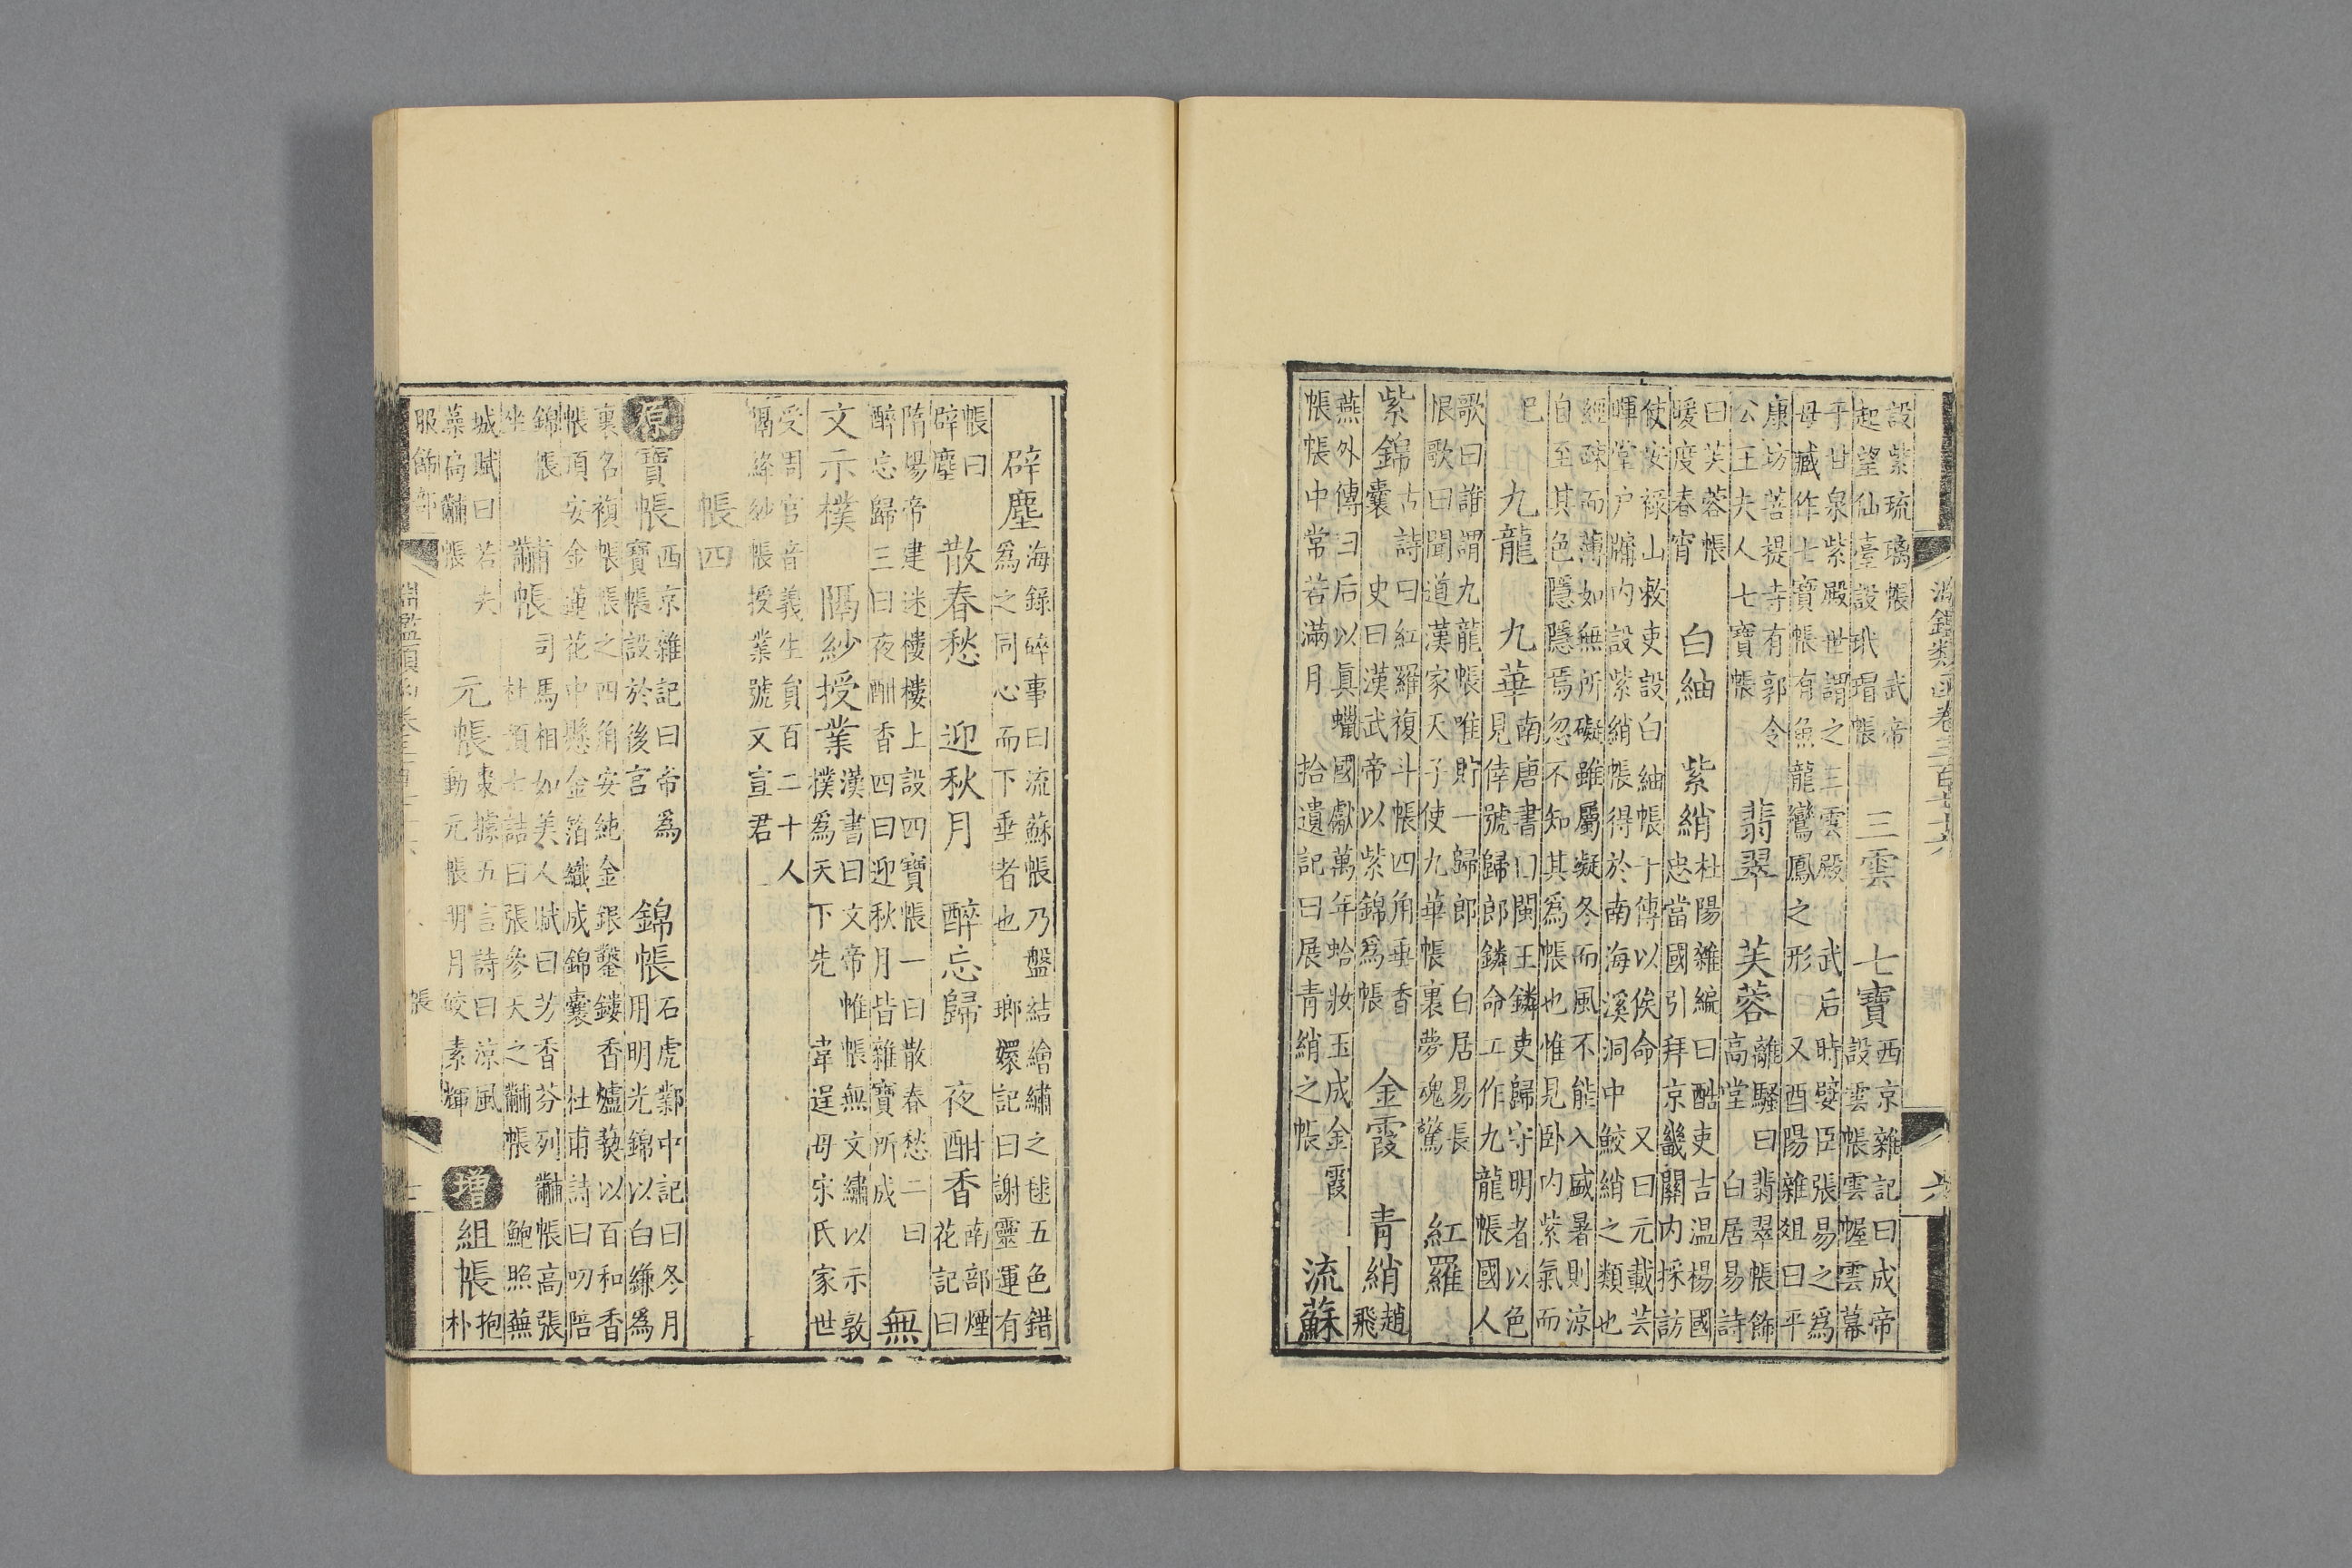 淵鑑類函卷三百七十六
六
設紫琉璃帳
起望仙臺設玳瑁帳
武帝
三雲
七寶
西京雜記曰成帝
設雲帳雲幄雲幕
于甘泉紫殿世謂之三雲殿
武后時嬖臣張易之爲
母臧作七寶帳有魚龍鸞鳳之形
又酉陽雜俎曰平
康坊菩提寺有郭令
公王夫人七寶帳
翡翠
芙蓉
離騷曰翡翠帳飾
高堂
白居易詩
曰芙蓉帳
暖度春宵
白紬
紫綃
杜陽雜編曰酷吏吉温楊國
忠當國引拜京畿關内採訪
使安祿山敕吏設白紬帳于傳以俟命
又曰元載芸
暉堂户牖内設紫綃帳得於南海溪洞中鮫綃之類也
輕疎而薄如無所礙雖屬凝冬而風不能入盛暑則涼
自至其色隱隱焉忽不知其爲帳也惟見卧内紫氣而
已
九龍
九華
南唐書曰閩王鏻吏歸守明者以色
見倖號歸郎鏻命工作九龍帳國人
歌曰誰謂九龍帳唯貯一歸郎
白居易長
恨歌曰聞道漢家天子使九華帳裏夢魂驚
紅羅
紫錦囊
古詩曰紅羅複斗帳四角垂香
史曰漢武帝以紫錦爲帳
金霞
青綃
趙
飛
燕外傳曰后以眞蠟國獻萬年蛤妝玉成金霞
帳帳中常若滿月
拾遺記曰展青綃之帳
流蘇
辟塵
海錄碎事曰流蘇帳乃盤結繪繡之毬五色錯
爲之同心而下垂者也
瑯嬛記曰謝靈運有
帳曰
辟塵
散春愁
迎秋月
醉忘歸
夜酣香
南部煙
花記曰
隋煬帝建迷樓樓上設四寶帳一曰散春愁二曰
醉忘歸三曰夜酣香四曰迎秋月皆雜寶所成
無
文示樸
隔紗授業
漢書曰文帝帷帳無文繡以示敦
樸爲天下先
韋逞母宋氏家世
受周官音義生員百二十人
隔絳紗帳授業號文宣君
帳四
原
寶帳
西京雜記曰帝爲
寶帳設於後宮
錦帳
石虎鄴中記曰冬月
用明光錦以白縑爲
裏名複帳帳之四角安純金銀鑿鏤香爐爇以百和香
帳頂安金蓮花中懸金箔織成錦囊
杜甫詩曰叨陪
錦帳
坐
黼帳
司馬相如美人賦曰芳香芬列黼帳高張
杜預七誥曰張參天之黼帳
鮑照蕪
城賦曰若夫
藻扃黼帳
元帳
束據五言詩曰涼風
動元帳明月皎素輝
增
組帳
抱
朴
服飾部
淵鑑類函卷三百七十六
帳
七